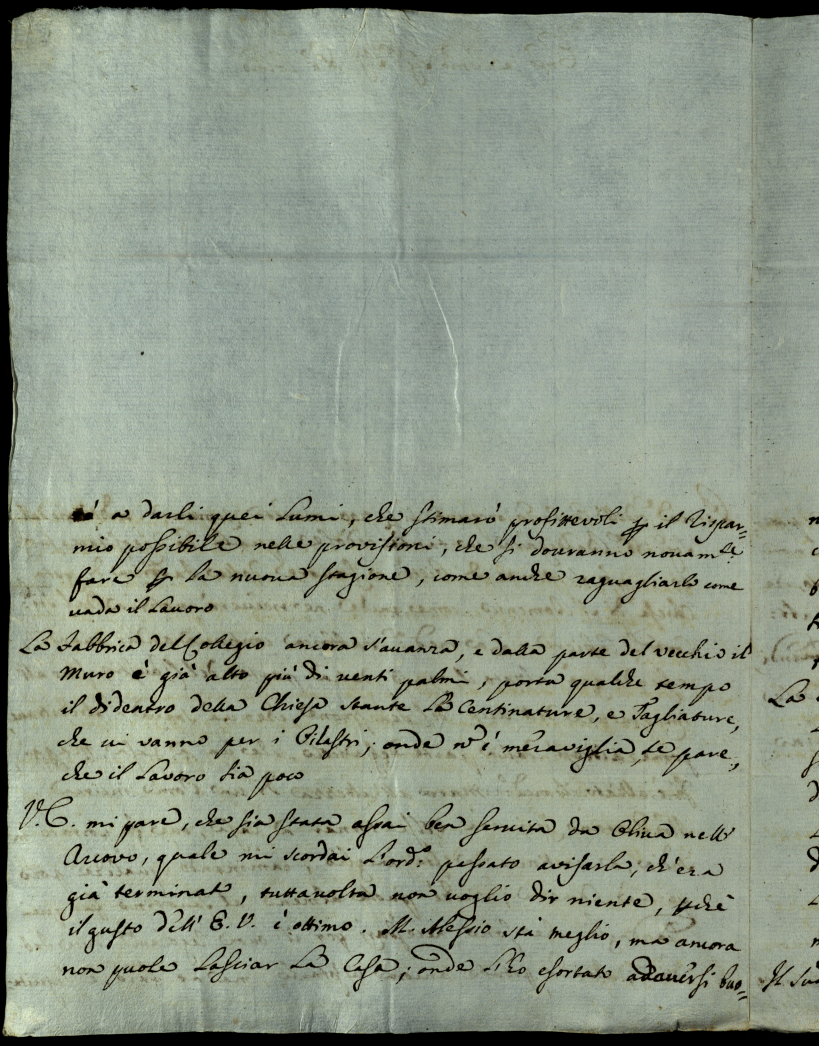 rò a darli quei Lumi, che stimarò profittevoli p il rispar=
mio possibile nelle provistioni, che si douranno novam.te
fare p la nuova stagione, come anche raguagliarlo come
vada il Lavoro
La Fabbrica del Collegio ancora s'avanza, e dalla parte del vecchio il
Muro è già alto più di venti palmi, porta qualche tempo
il didentro della Chiesa stante la Centinature, e Tagliature,
che ui vanno per i Pilastri; onde nō è meraviglia, se pare,
che il Lavoro sia poco
V.E. mi pare, che sia stata assai ben servita da Oliva nell'
Arcovo, quale mi scordai l'ord.o passato avisarla, ch'era
già terminato, tuttavolta non voglio dir niente, pchè
il gusto dell' E.V. è ottimo. M. Alessio stà meglio, ma ancora
non puole lasciar la Casa; onde l'ho esortato ad aversi buo=
La
Il